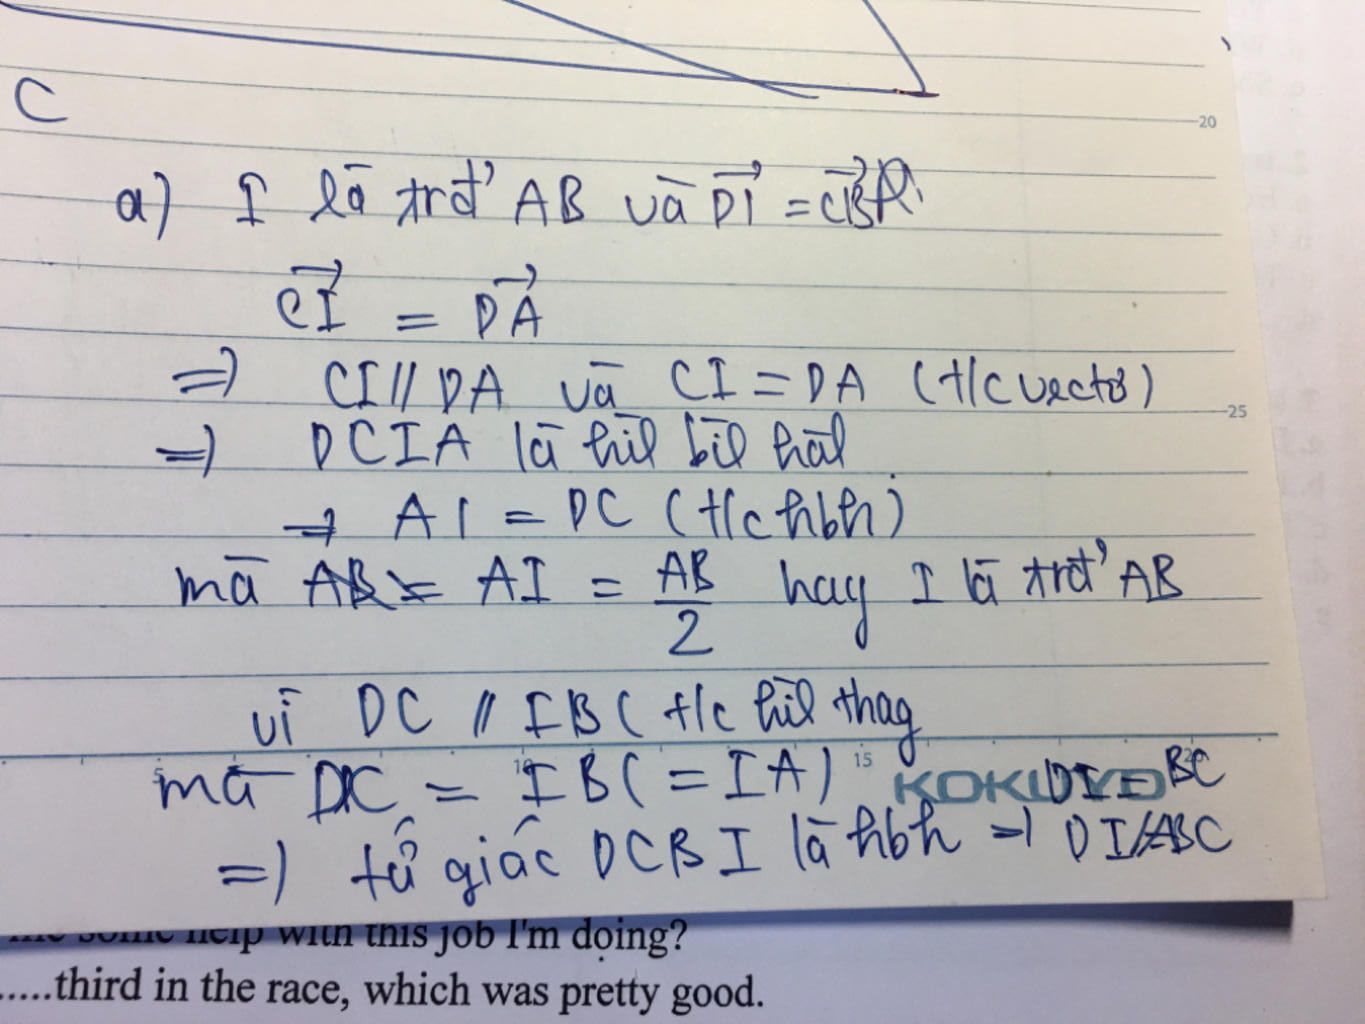 C
20
a) I là trđ' AB và DI = CB
CI = DA
=> CI // DA và CI = DA (t/c vectơ)
25
=> DCIA là hìl bìl hàl
=> AI = DC (t/c hbh)
mà AI = AB/2 hay I là trđ' AB
vì DC // IB ( t/c hìl thag
5 10 15 20
mà DC = IB (= IA) KOKUYO DI = BC
=> tứ giác DCBI là hbh => DI // BC
me some help with this job I'm doing?
.....third in the race, which was pretty good.